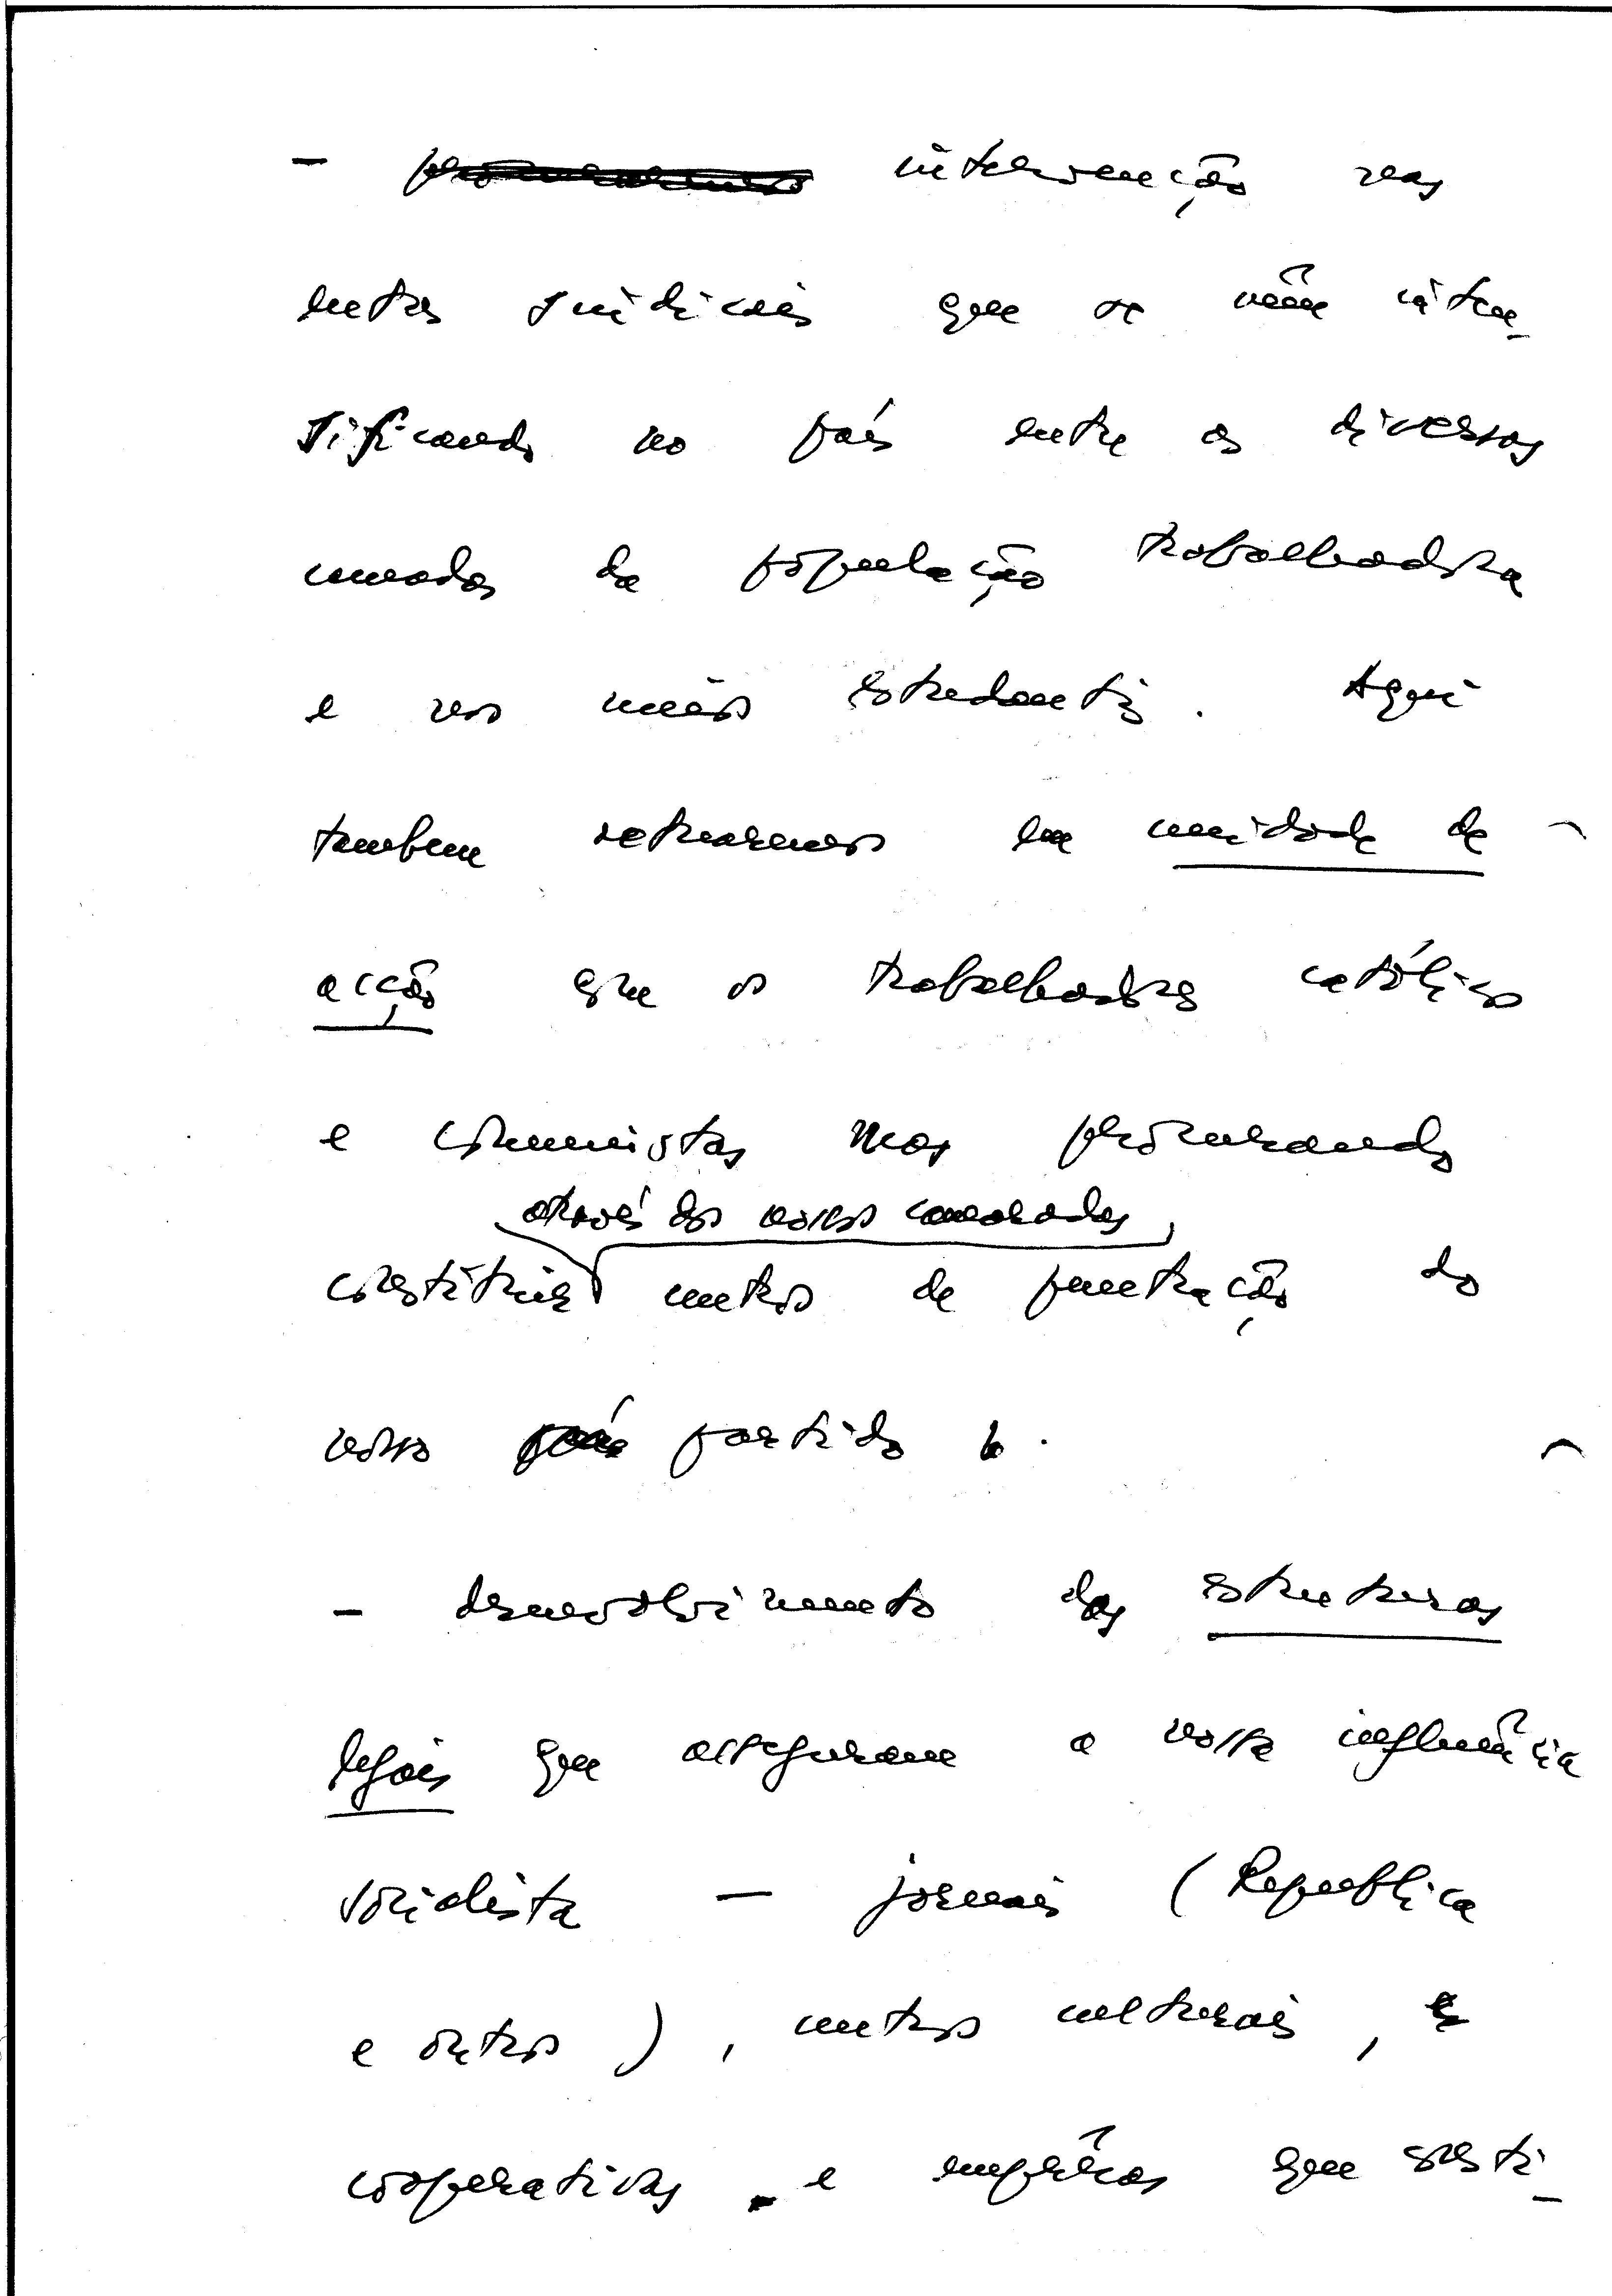 - intervenção nas
lutas sindicais que se vêm inten-
sificando no país entre as diversas
camadas da população trabalhadora
e nos meios estudantis. Aqui
tambem actuaremos em unidade de
acção com os trabalhadores católicos
e comunistas mas procurando
através dos nossos camaradas,
constituir centros de penetração do
nosso partido.
- desenvolvimento das estruturas
legais que asseguram a nossa influência
socialista — jornais (Republica
e outros), centros culturais,
cooperativas e emprêsas que consti-